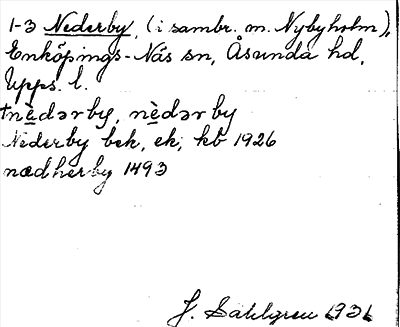 1-3 Nederby, (i sambr. m. Nybyholm),
Enköpings-Näs sn, Åsunda hd,
Upps. l.
†nèdərby, nèdər by
Nederby bek, ek, kb 1926
nædherby 1493
J. Sahlgren 1931